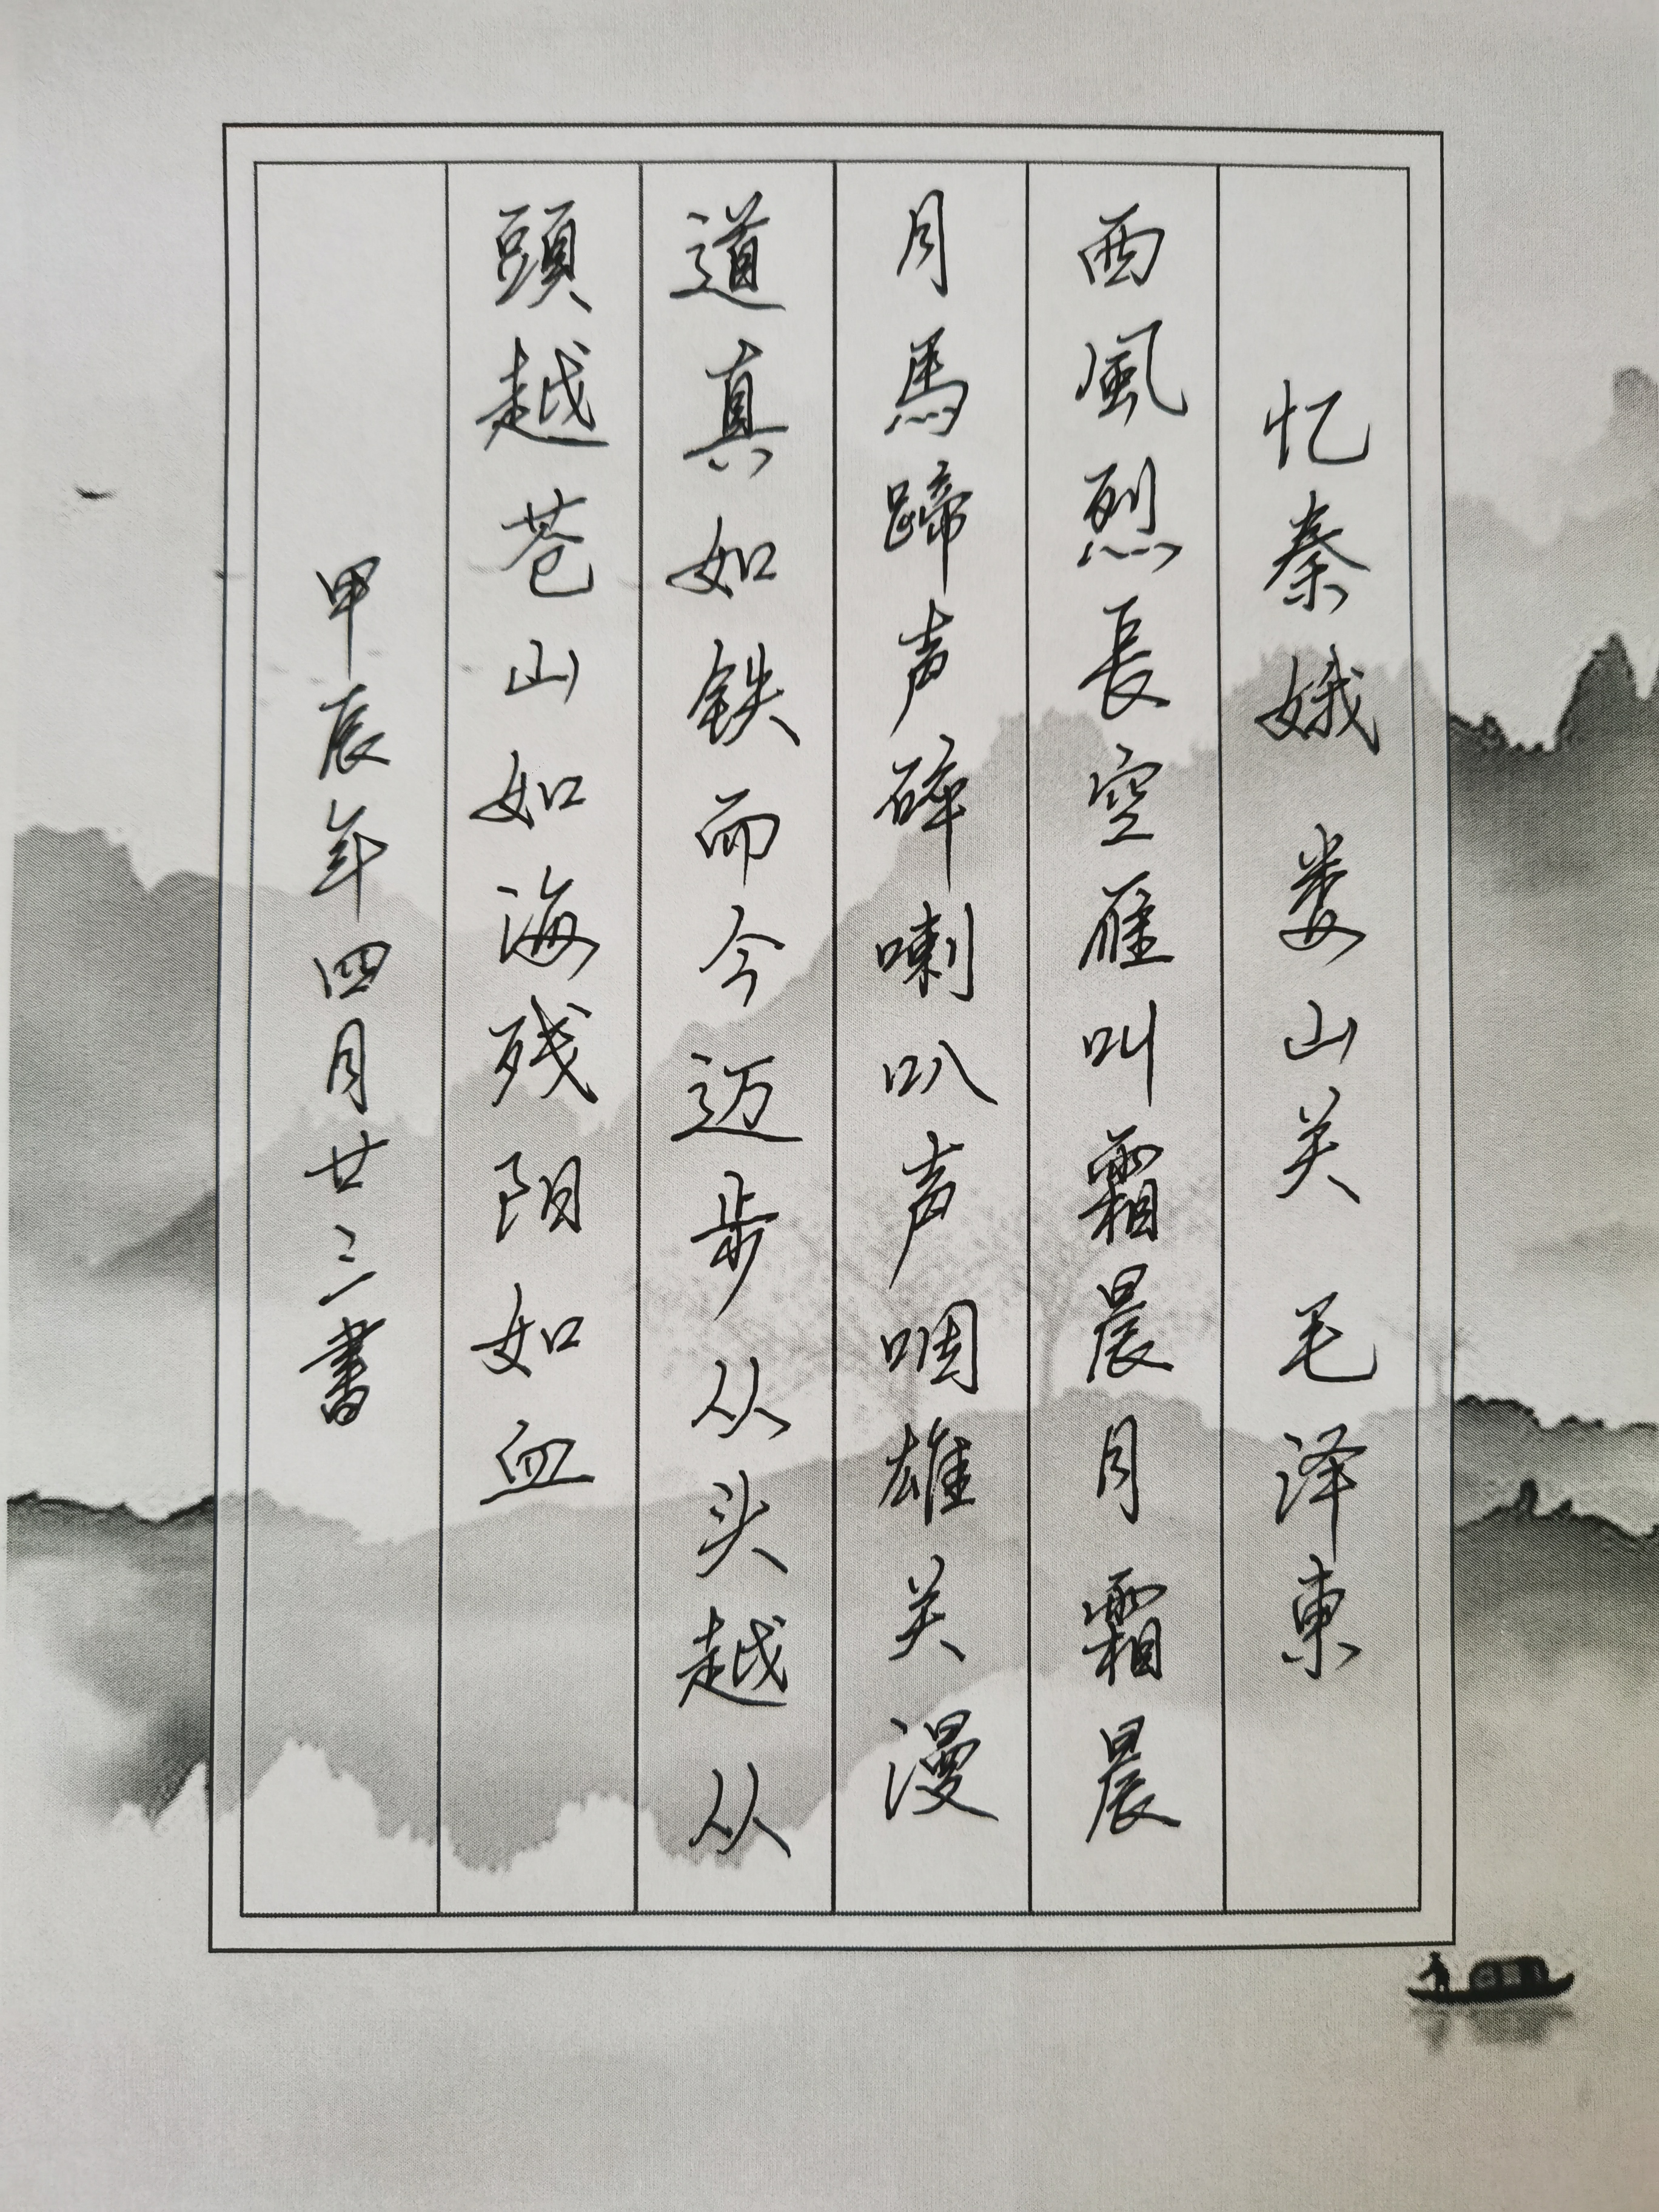 忆秦娥 娄山关 毛泽東
西風烈長空雁叫霜晨月霜晨
月馬蹄声碎喇叭声咽雄关漫
道真如铁而今迈步从头越从
頭越苍山如海残阳如血
甲辰年四月廿三書